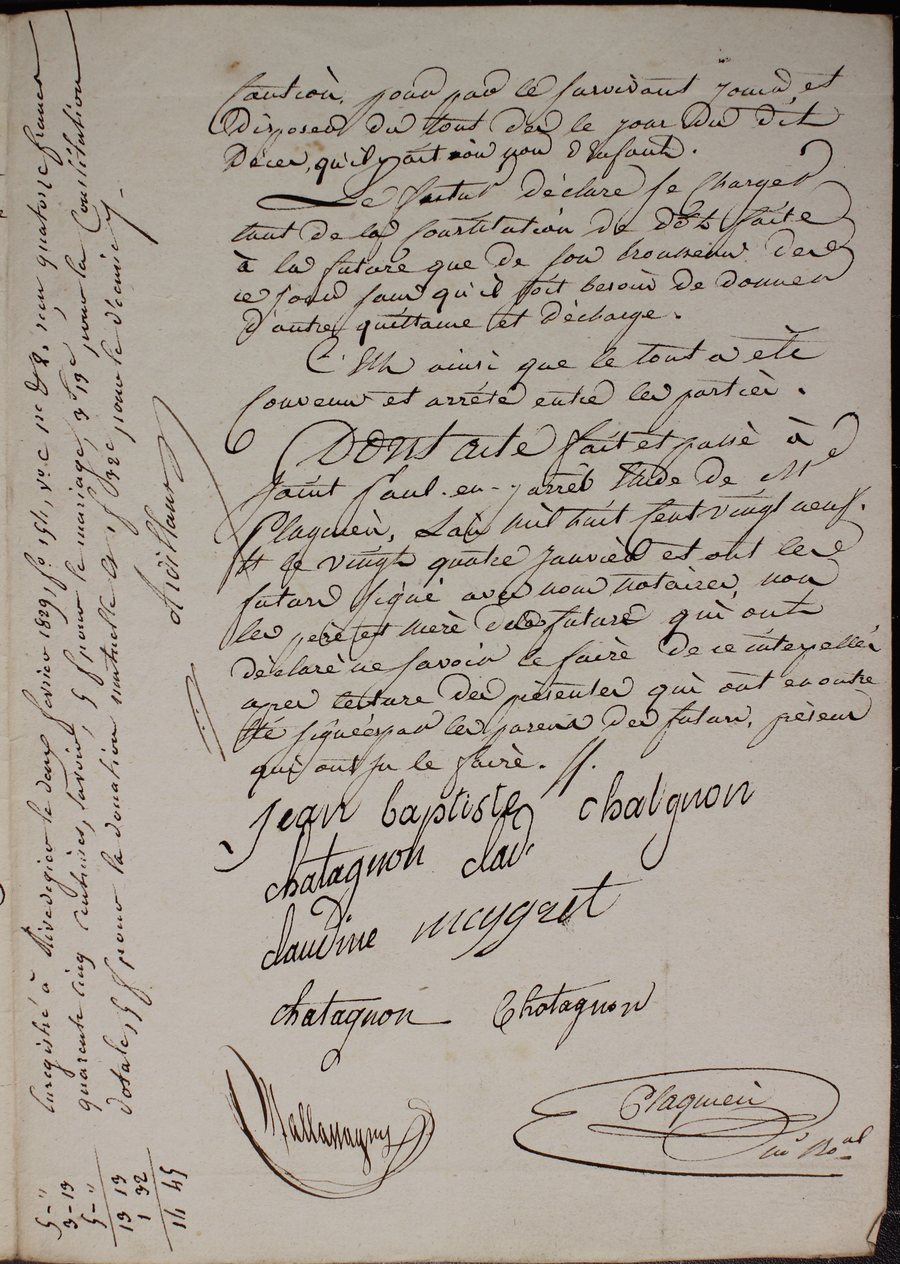 caution, pour par le survivant jouir et
disposer du tout dès le jour du dit
décès, qu'il y ait ou non d'enfants.
Le futur déclare se charger
tant de la constitution de dot faite
à la future que de son trousseau dès
ce jour sans qu'il soit besoin de donner
d'autre quittance et décharge.
C'est ainsi que le tout a été
convenu et arrêté entre les parties.
Dont acte fait et passé à
Saint Paul-en-jarrêt Etude de Me
Plagnieu, L'an mil huit cent vingt neuf,
et le vingt quatre janvier et ont les
futurs signé avec nous notaires, non
les père et mère de la future qui ont
déclaré ne savoir le faire de ce interpellés
après lecture des présentes qui ont en outre
été signées par les parens des futurs, présens
qui ont su le faire.
jean baptiste chatgnon
chatagnon claud
claudine meygret
chatagnon Chatagnon
Mallassagny
Plagnieu
no Roal
Enregistré à Rivedegier le deux février 1829, fo 154, vo c 1re & 8. reçu quatorze francs
quarente cinq centimes, savoir, 5 f pour le mariage, 3 f 13 c, pour la Constitution
dotale, 5 f pour la donation mutuelle et 1 f 32 c pour le décime
5 - "
3 - 13
5 - "
13 13
1 32
14 45